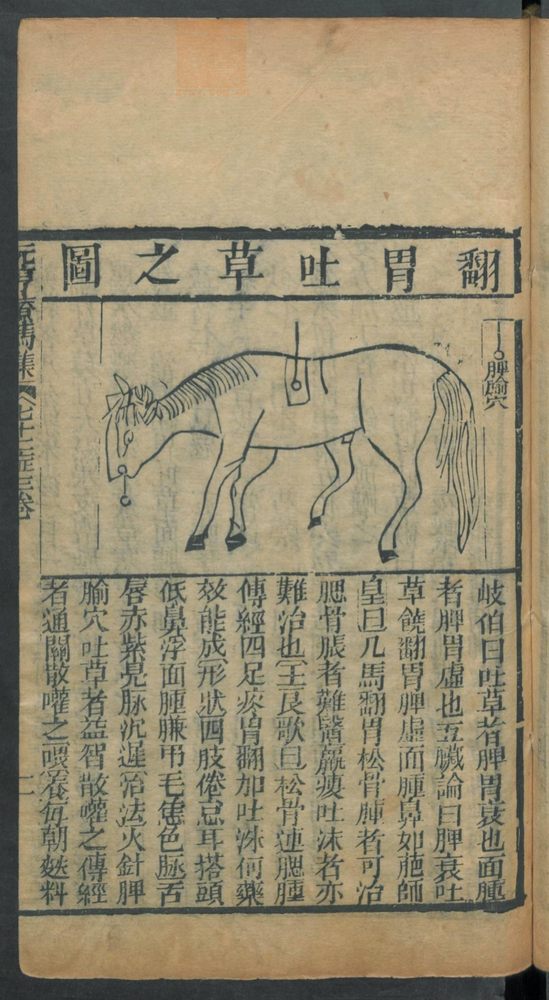 翻胃吐草之圖
脾腧穴
岐伯曰吐草者脾胃衰也面腫
者脾胃虛也五臟論曰脾衰吐
草饒翻胃脾虛面腫鼻如䏢師
皇曰凡馬翻胃松骨腫者可治
腮骨脹者難醫羸瘦吐沫者亦
難治也王良歌曰松骨連腮腫
傳經四足疼胃翻加吐沫何藥
效能成形狀四肢倦怠耳搭頭
低鼻浮面腫賺吊毛焦色脉舌
唇赤紫乳脉沉遲治法火針脾
腧穴吐草者益智散嚾之傳經
者通關散嚾之喂養每朝麩料
元亨療馬集 七十二症三卷